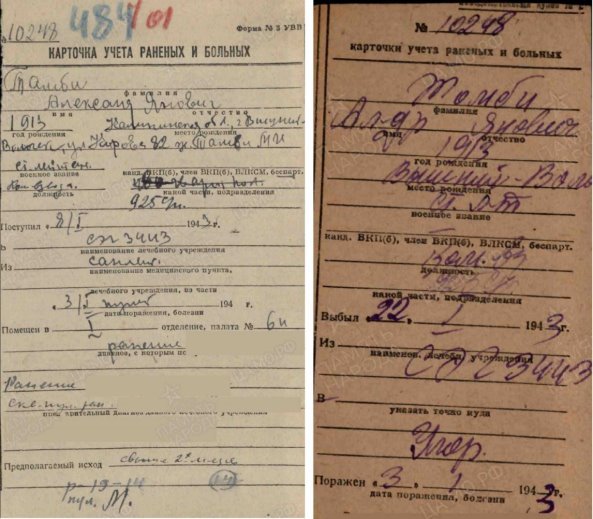 484/01
№ 10248
Форма № 5 УВВ
КАРТОЧКА УЧЕТА РАНЕНЫХ И БОЛЬНЫХ
Тамби
фамилия
Александр Янович
имя отчество
1913 Калининская обл. г. Вышний
год рождения место рождения
Волочек, ул. Кирова 82 Тамби
ст. лейтен.
воинское звание канд. ВКП(б), член ВКП(б), ВЛКСМ, беспарт.
Ком. взвода
должность какой части, подразделения
925
Поступил „ 8/I 1943 г.
В СЭГ 3443
наименование лечебного учреждения
Из
наименование медицинского пункта,
лечебного учреждения, из части
3/I 194 г.
дата поражения, болезни
Помещен в I отделение, палата № 6
ранение
диагноз, с которым
Ранение
предварительный диагноз данного лечебного учреждения
Предполагаемый исход свыше 2х
№ 10248
карточки учета раненых и больных
Томби
фамилия
Ал-др Янович
имя отчество
1913
год рождения
Вышний-Воло
место рождения
ст. л-т
воинское звание
канд. ВКП(б), член ВКП(б), ВЛКСМ, беспарт.
Ком. вз
должность
925
какой части, подразделения
Выбыл „ 22 „ I 1943 г.
Из СЭГ 3443
наименов. лечебн. учреждения
В
указать точно куда
Поражен „ 3 „ 1 1943 г.
дата поражения, болезни